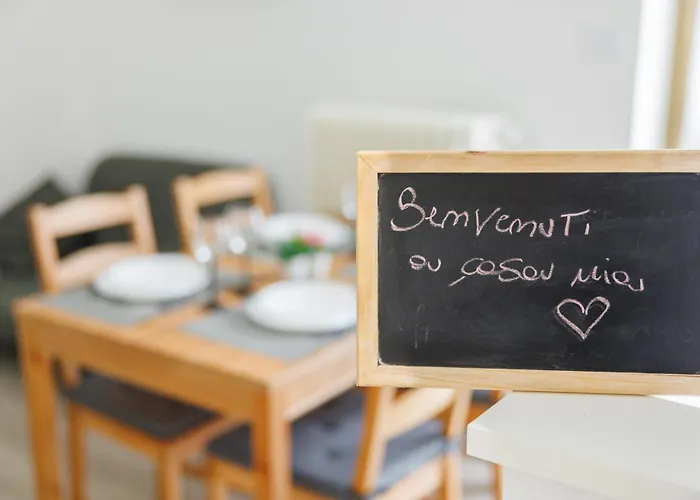 Benvenuti
a casa mia